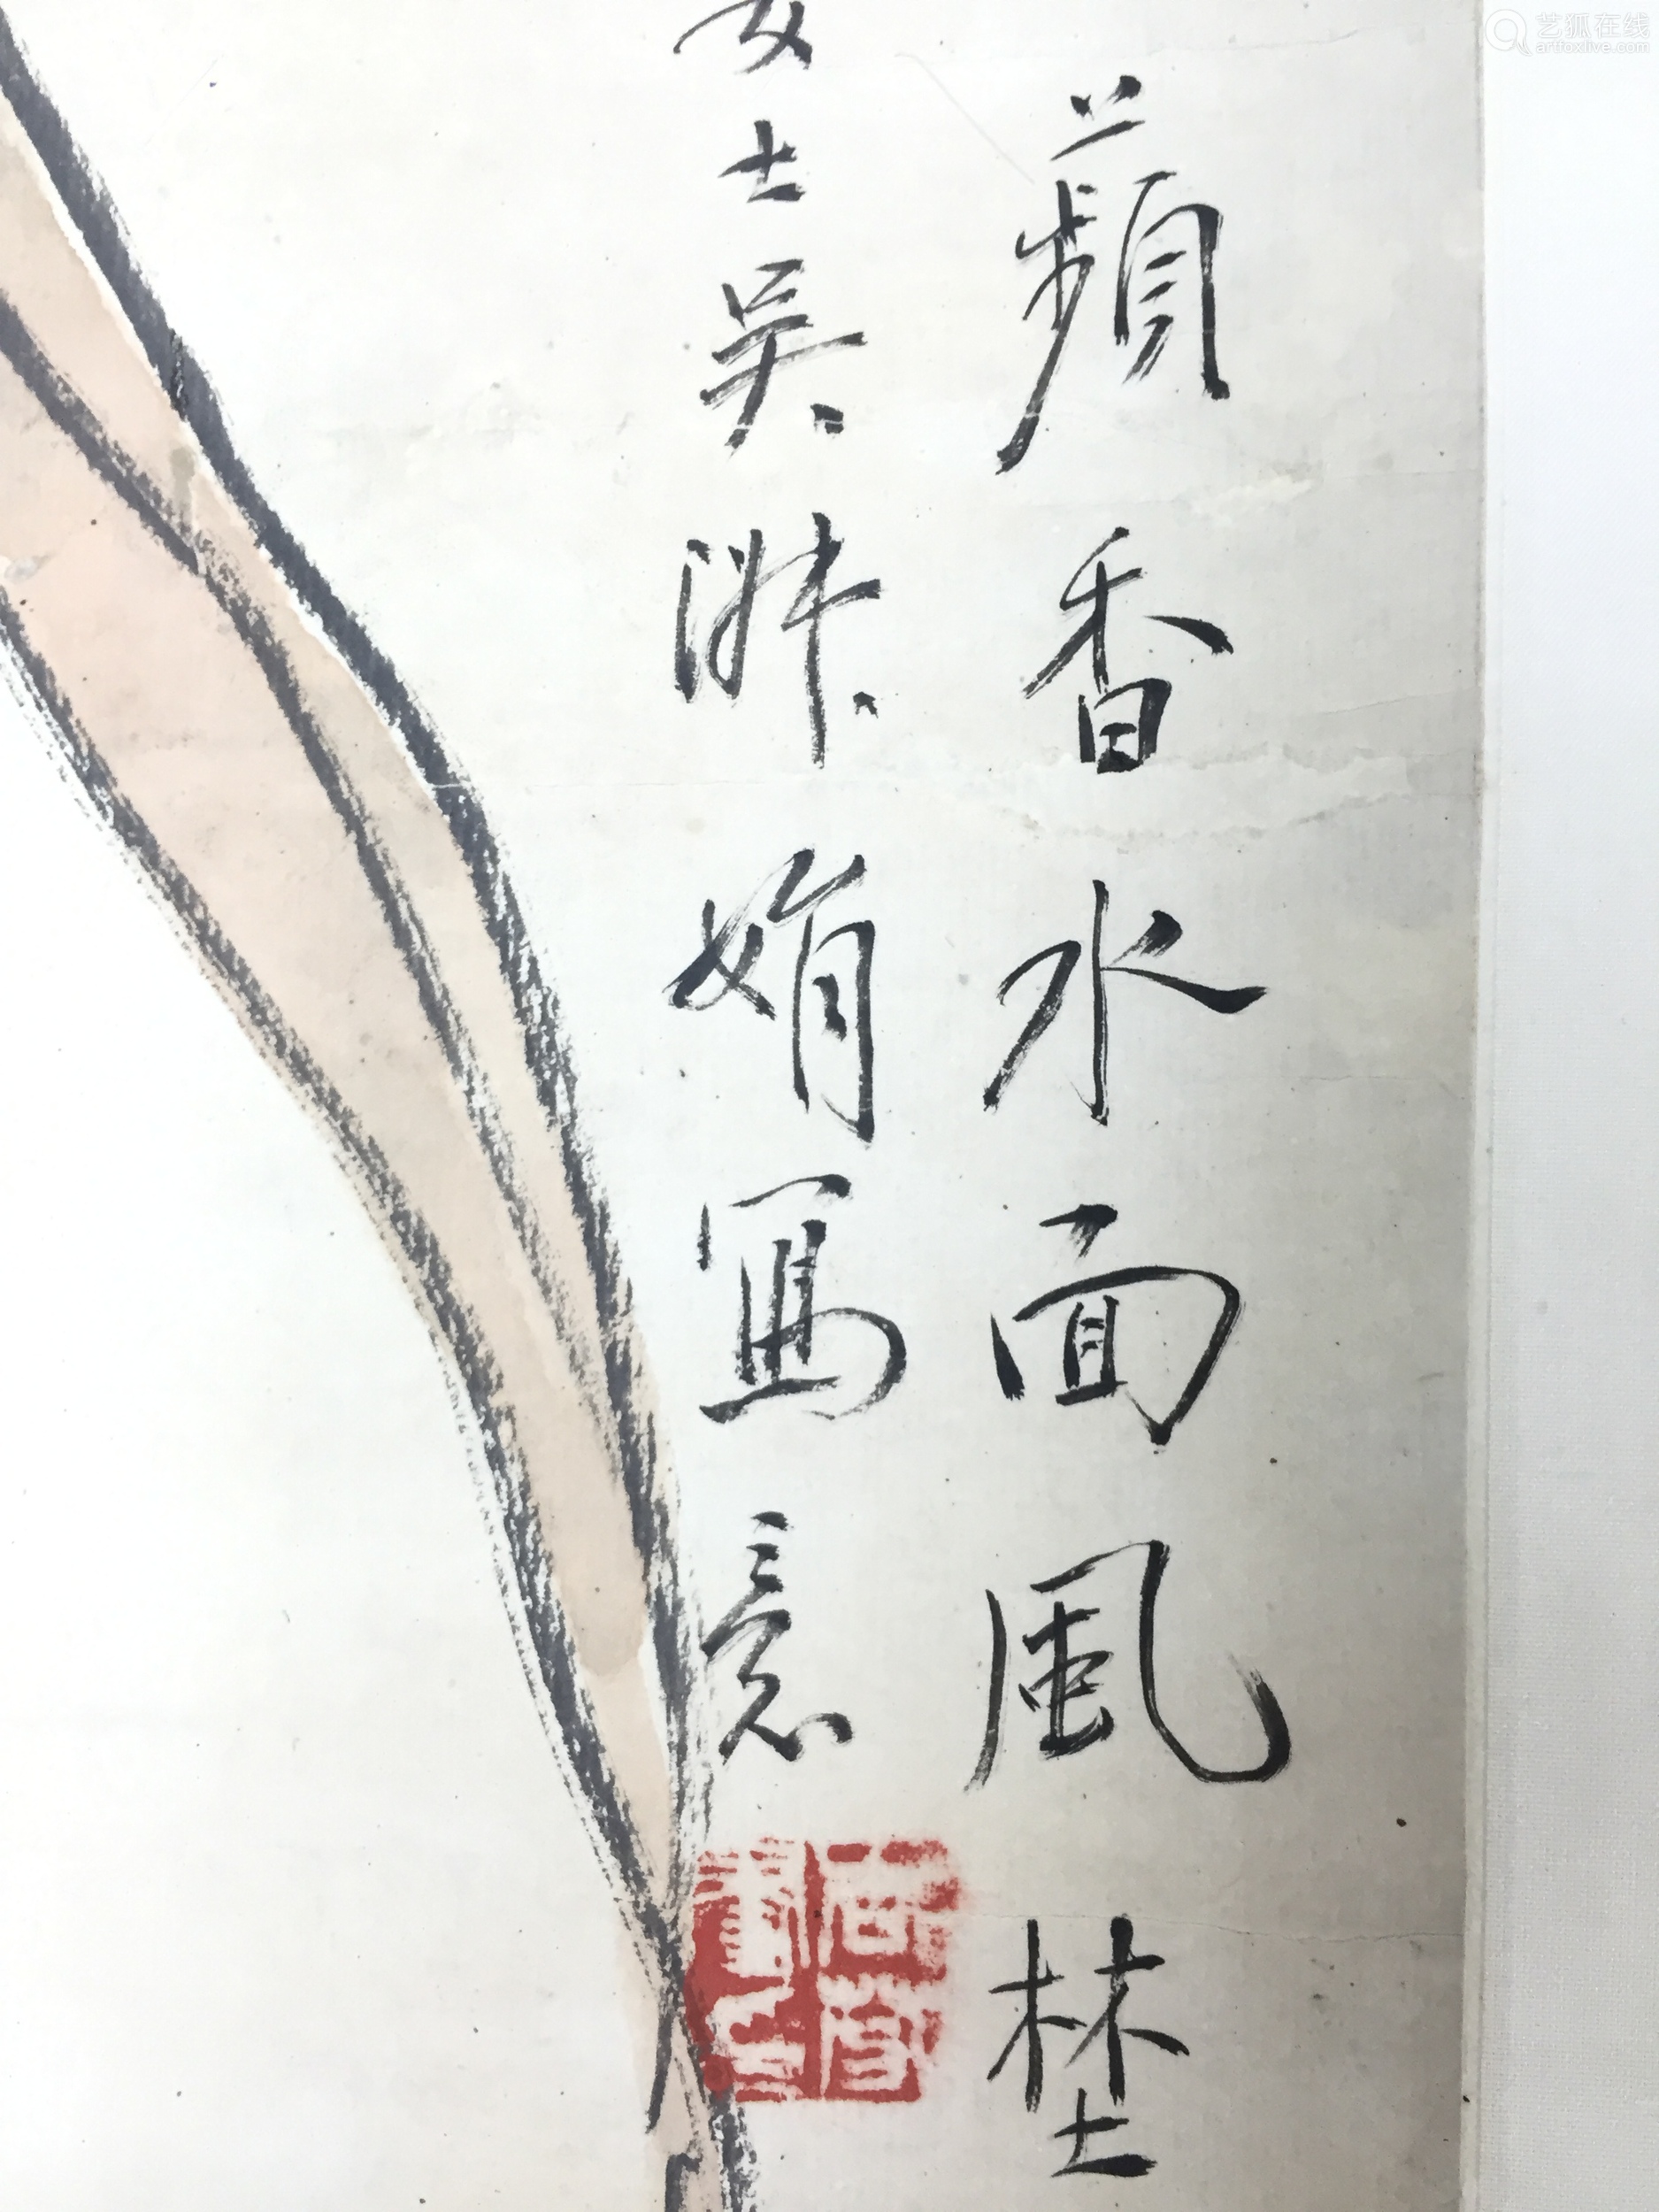 蘋香水面風埜
女士吳淑娟寫意
艺狐在线
artfoxlive.com